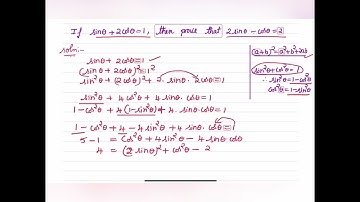 If sinθ + 2cosθ = 1, then prove that 2sinθ - cosθ = 2
soln:-
sinθ + 2cosθ = 1
(sinθ + 2cosθ)² = 1²
sin²θ + (2cosθ)² + 2. sinθ. 2cosθ = 1
sin²θ + 4cos²θ + 4sinθ. cosθ = 1
1 - cos²θ + 4(1 - sin²θ) + 4. sinθ. cosθ = 1
1 - cos²θ + 4 - 4sin²θ + 4 sinθ. cosθ = 1
5 - 1 = cos²θ + 4sin²θ - 4sinθ cosθ
4 = (2 sinθ)² + cos²θ - 2
(a+b)² = a² + b² + 2ab
sin²θ + cos²θ = 1
∴ sin²θ = 1 - cos²θ
cos²θ = 1 - sin²θ